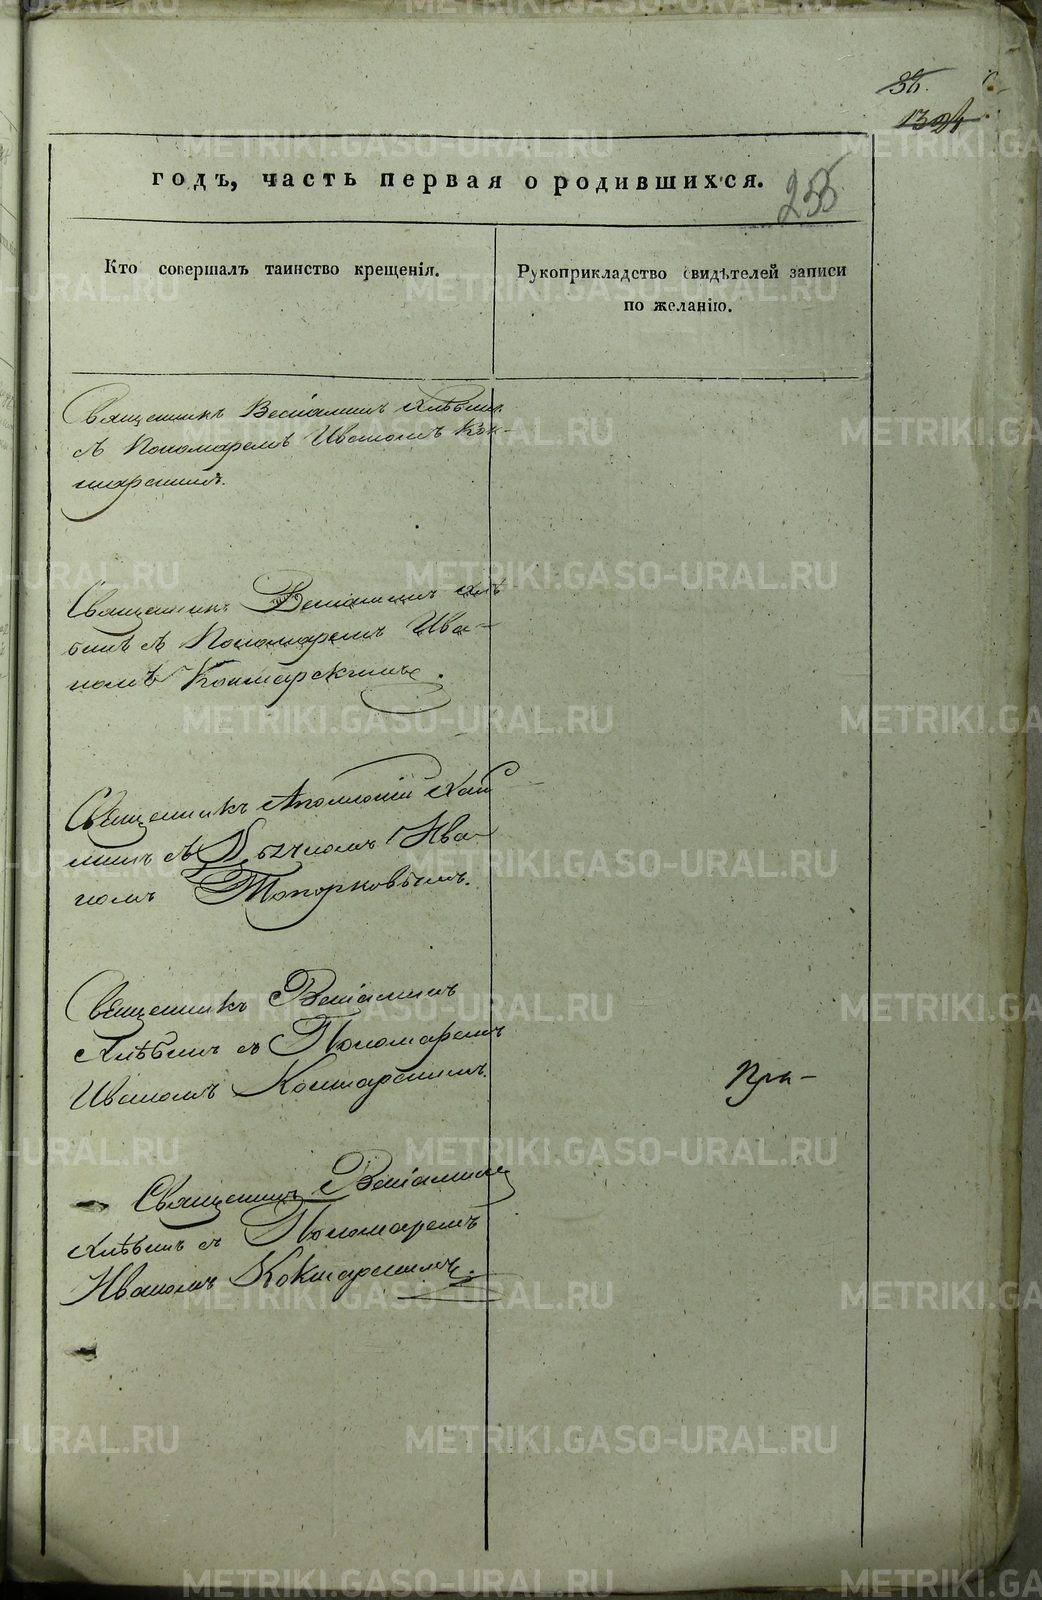 255
годъ, часть первая о родившихся.
Кто совершалъ таинство крещенія.
Рукоприкладство свидѣтелей записи
по желанію.
Священникъ Веніаминъ Хлѣбинъ
съ Пономаремъ Иваномъ Кок-
шарскимъ.
Священникъ Веніаминъ Хлѣ
бинъ съ Пономаремъ Ива-
номъ Кокшарскимъ.
Священникъ
съ Дьячкомъ Ива-
номъ Топорковымъ.
Священникъ Веніаминъ
Хлѣбинъ съ Пономаремъ
Иваномъ Кокшарскимъ.
Священникъ Веніаминъ
Хлѣбинъ съ Пономаремъ
Иваномъ Кокшарскимъ.
METRIKI.GASO-URAL.RU